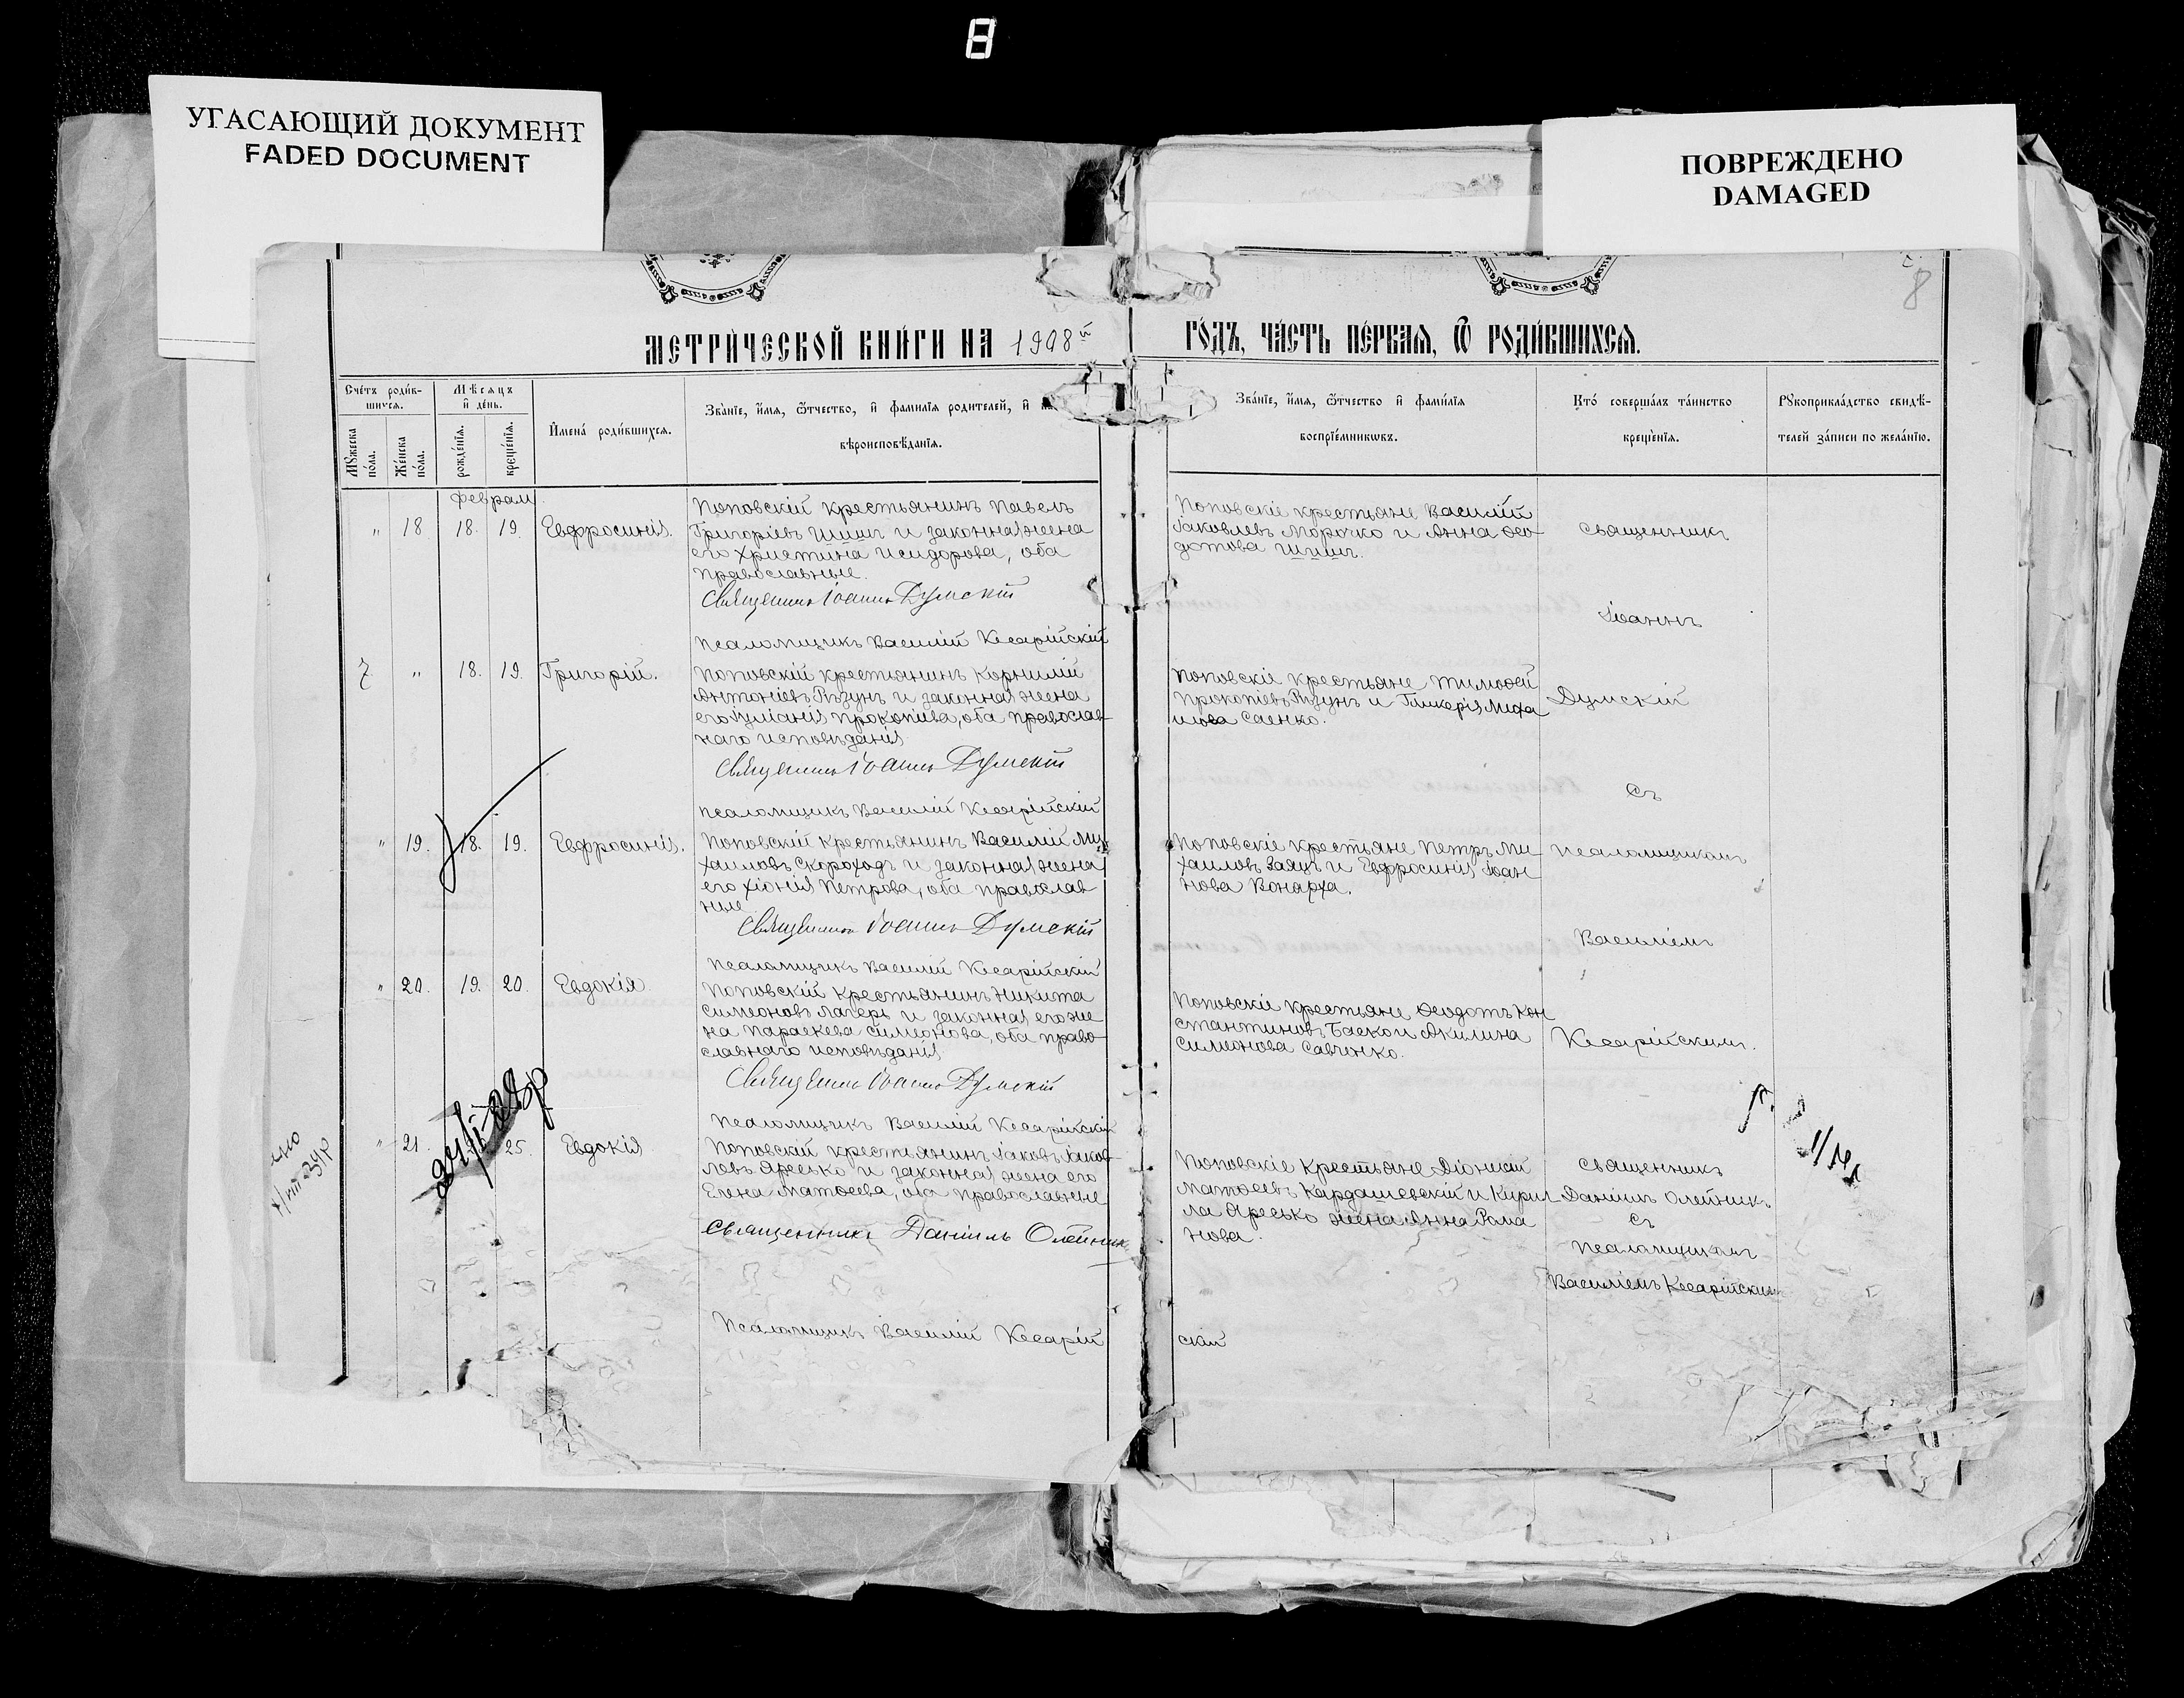 8
УГАСАЮЩИЙ ДОКУМЕНТ
FADED DOCUMENT
ПОВРЕЖДЕНО
DAMAGED
8
МЕТРИЧЕСКОЙ КНИГИ НА 1908й
ГОДЪ, ЧАСТЬ ПЕРВАЯ, Ѿ РОДИВШИХСЯ.
Счетъ родив-
шихся.
Мѣсяцъ
и день.
Мꙋжеска
пола.
Женска
пола.
рожденія.
крещенія.
Имена родившихся.
Званіе, имя, ѿчество, и фамилія родителей, и
вѣроисповѣданія.
Званіе, имя, ѿчество и фамилія
воспріемникѡвъ.
Кто совершалъ таинство
крещенія.
Рꙋкоприкладство свидѣ-
телей записи по желанію.
" 18 18. 19. Евфросинія.
Поповскій крестьянинъ Павелъ
Григоріевъ Шишъ и законная жена
его Христина Исидорова, оба
православные.
Священникъ Іоаннъ Думскій
Псаломщикъ Василій Кесарійскій
Поповскіе крестьяне Василій
Іаковлевъ Морочко и Анна Ѳео-
дотова Шишъ.
Священникъ
Іоаннъ
7 " 18. 19. Григорій.
Поповскій крестьянинъ Корнилій
Антоніевъ Рѣзунъ и законная жена
его Іуліанія Прокопіева, оба православ-
наго исповѣданія
Священникъ Іоаннъ Думскій
Псаломщикъ Василій Кесарійскій
Поповскіе крестьяне Тимоѳей
Прокопіевъ Рѣзунъ и Гликерія Миха
илова Саенко.
Думскій
съ
" 19. 18. 19. Евфросинія.
Поповскій крестьянинъ Василій Ми-
хаиловъ Скороходъ и законная жена
его Хіонія Петрова, оба православ
ные
Священникъ Іоаннъ Думскій
Псаломщикъ Василій Кесарійскій
Поповскіе крестьяне Петръ Ми-
хаиловъ Заяцъ и Евфросинія Іоан
нова Вонарха.
псаломщикомъ
Василіемъ
" 20. 19. 20. Евдокія
Поповскій крестьянинъ Никита
Симеоновъ Лагерь и законная его же
на Параскева Симеонова, оба право-
славнаго исповѣданія
Священникъ Іоаннъ Думскій
Псаломщикъ Василій Кесарійскій
Поповскіе крестьяне Ѳеодотъ Кон
стантиновъ Баско и Акилина
Симеонова Савченко.
Кесарійскимъ.
" 21. 25. Евдокія
Поповскій крестьянинъ Іаковъ Іаков-
левъ Яресько и законная жена его
Елена Матѳеева, оба православные
Священникъ Даніилъ Олейник
Псаломщикъ Василій Кесарій
скій
Поповскіе крестьяне Діонисій
Матѳеевъ Кардашевскій и Кирил-
ла Яресько жена Анна Рома
нова.
Священникъ
Даніилъ Олейникъ
съ
псаломщикомъ
Василіемъ Кесарійскимъ